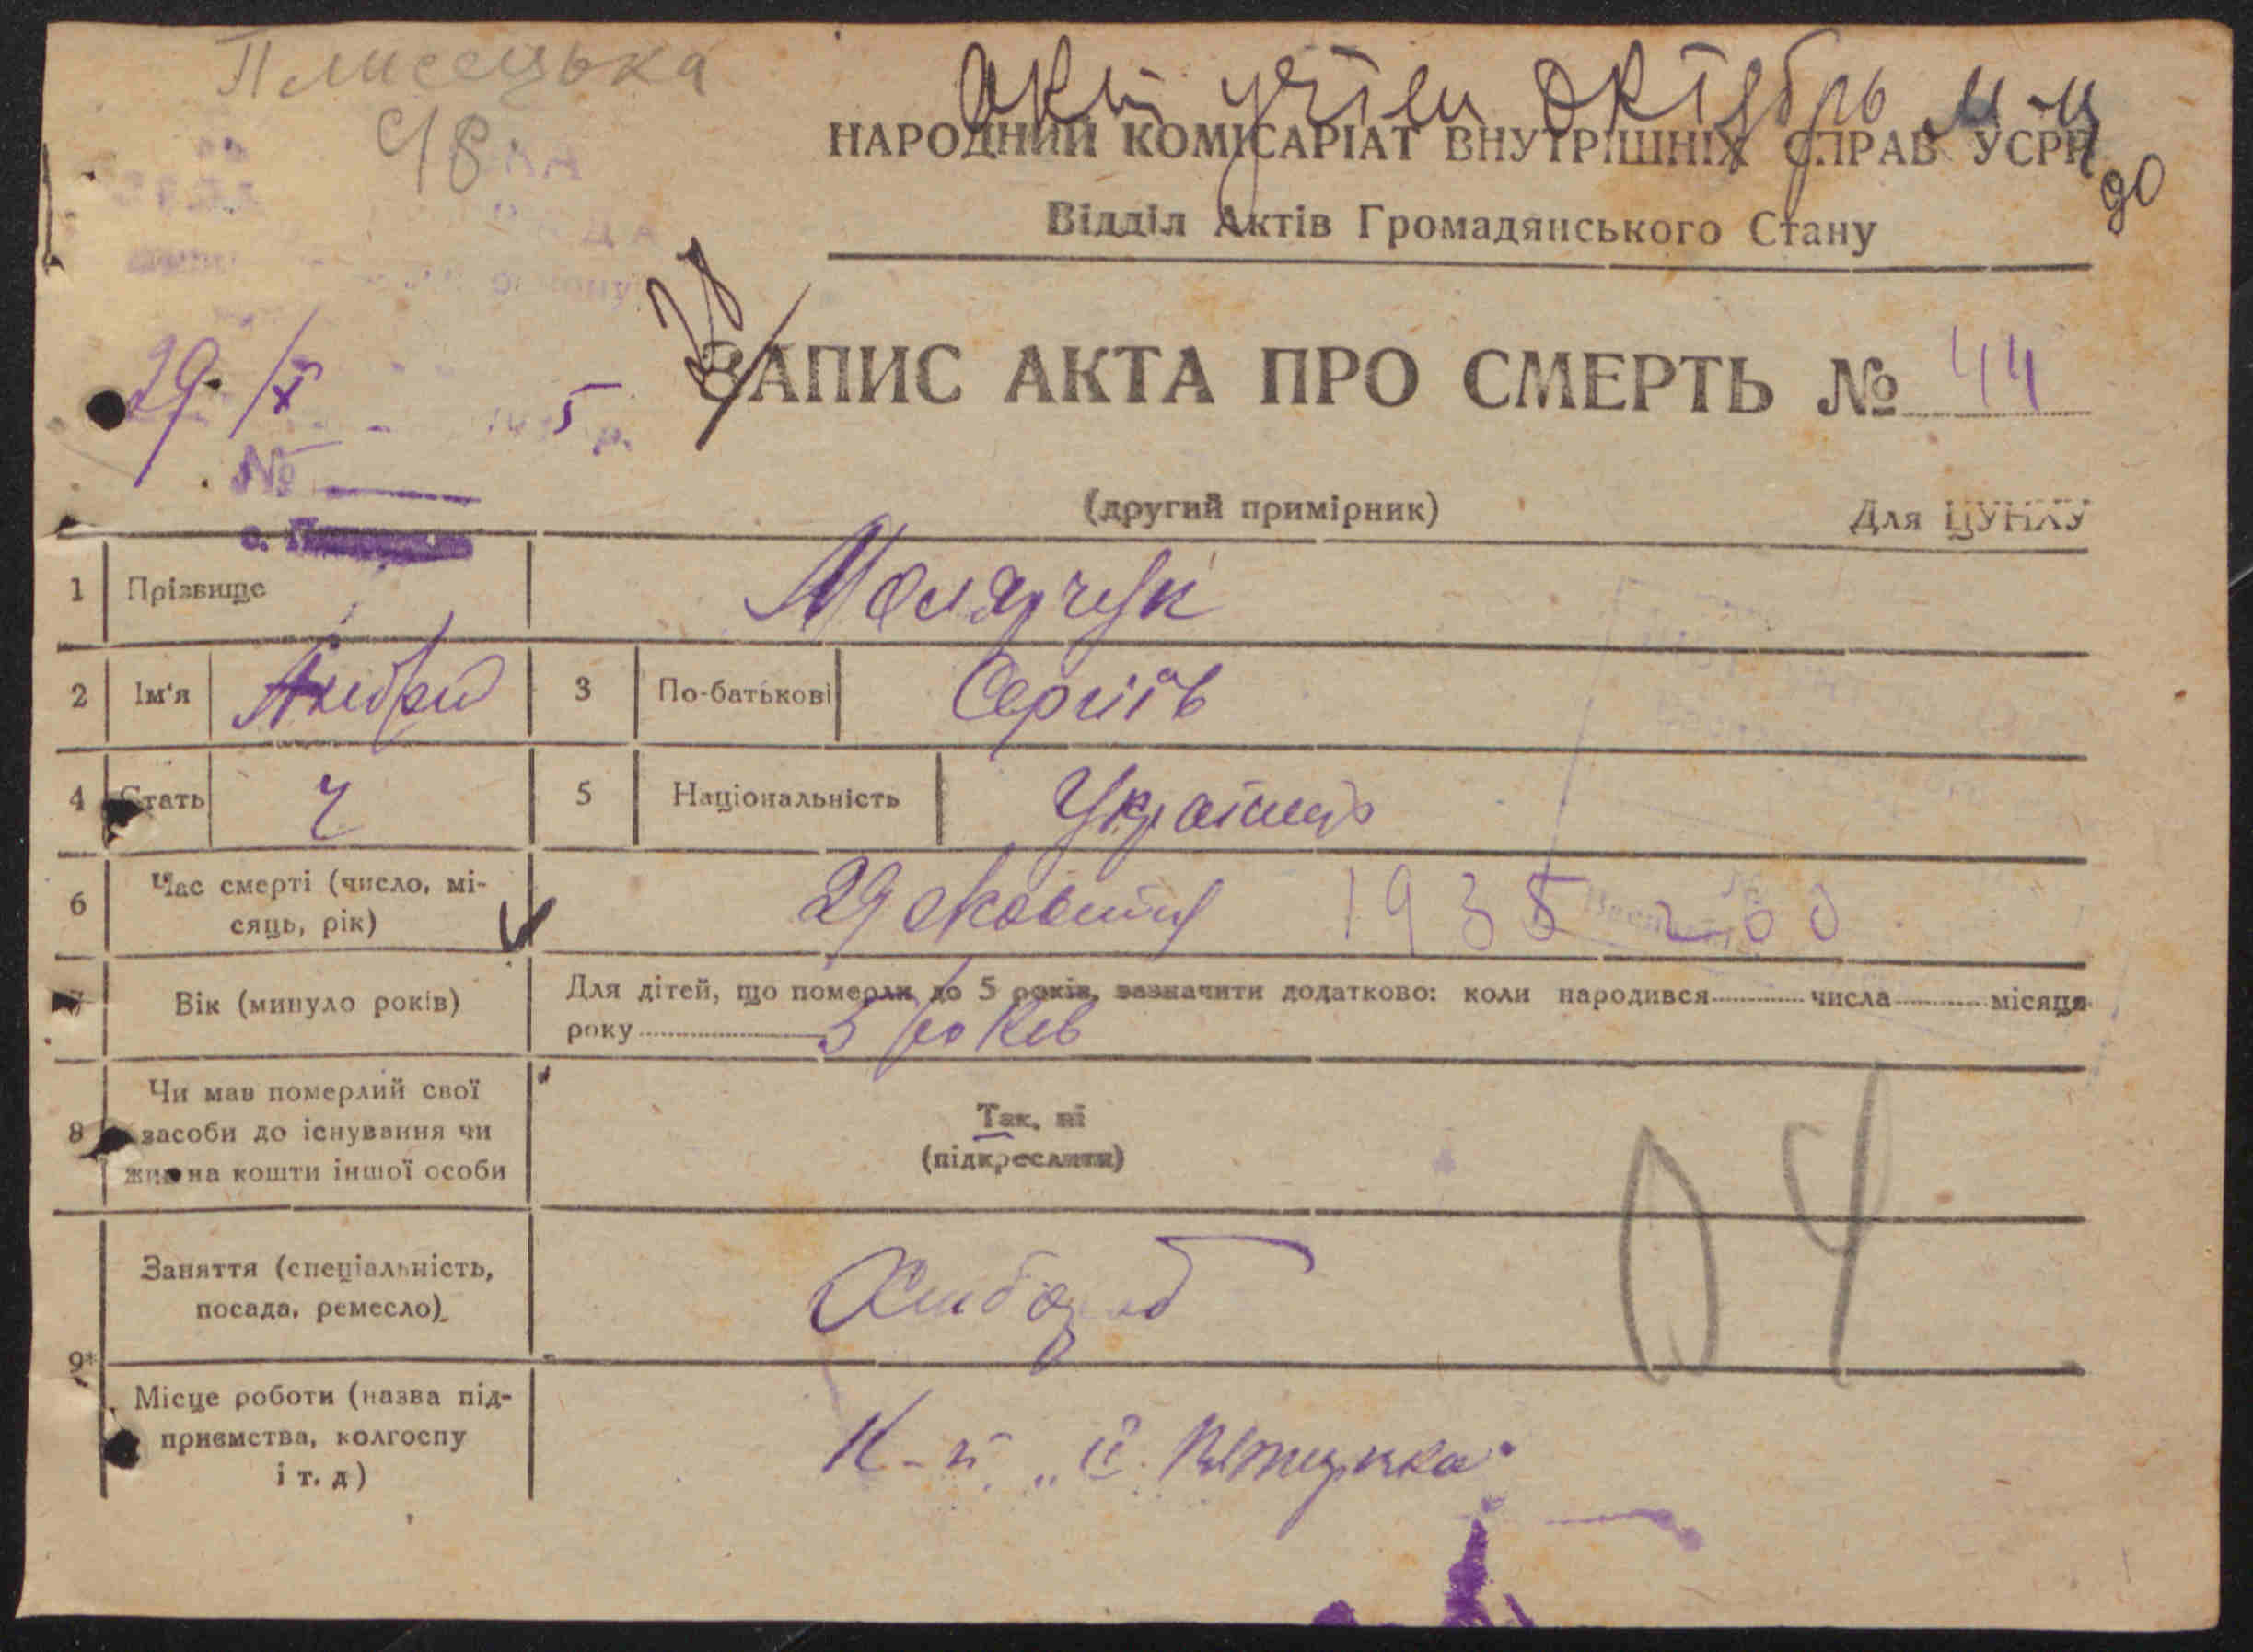 Плисецька
48
акт учтен октябрь м-ц
НАРОДНИЙ КОМІСАРІАТ ВНУТРІШНІХ СПРАВ УСРР
Відділ Актів Громадянського Стану
29/X 5 р.
№
ЗАПИС АКТА ПРО СМЕРТЬ № 44
(другий примірник) Для ЦУНХУ
1 Прізвище Молярчук
2 Ім'я Андрій 3 По-батькові Сергіїв
4 Стать ч 5 Національність Українец
6 Час смерті (число, мі-
сяць, рік) 29 жовтня 1935
7 Вік (минуло років) Для дітей, що померли до 5 років, зазначити додатково: коли народився числа місяця
року 5 років
8 Чи мав померлий свої
засоби до існування чи
жив на кошти іншої особи
Так, ні
(підкреслити)
04
9* Заняття (спеціальність,
посада, ремесло) Хлібороб
Місце роботи (назва під-
приємства, колгоспу
і т. д)